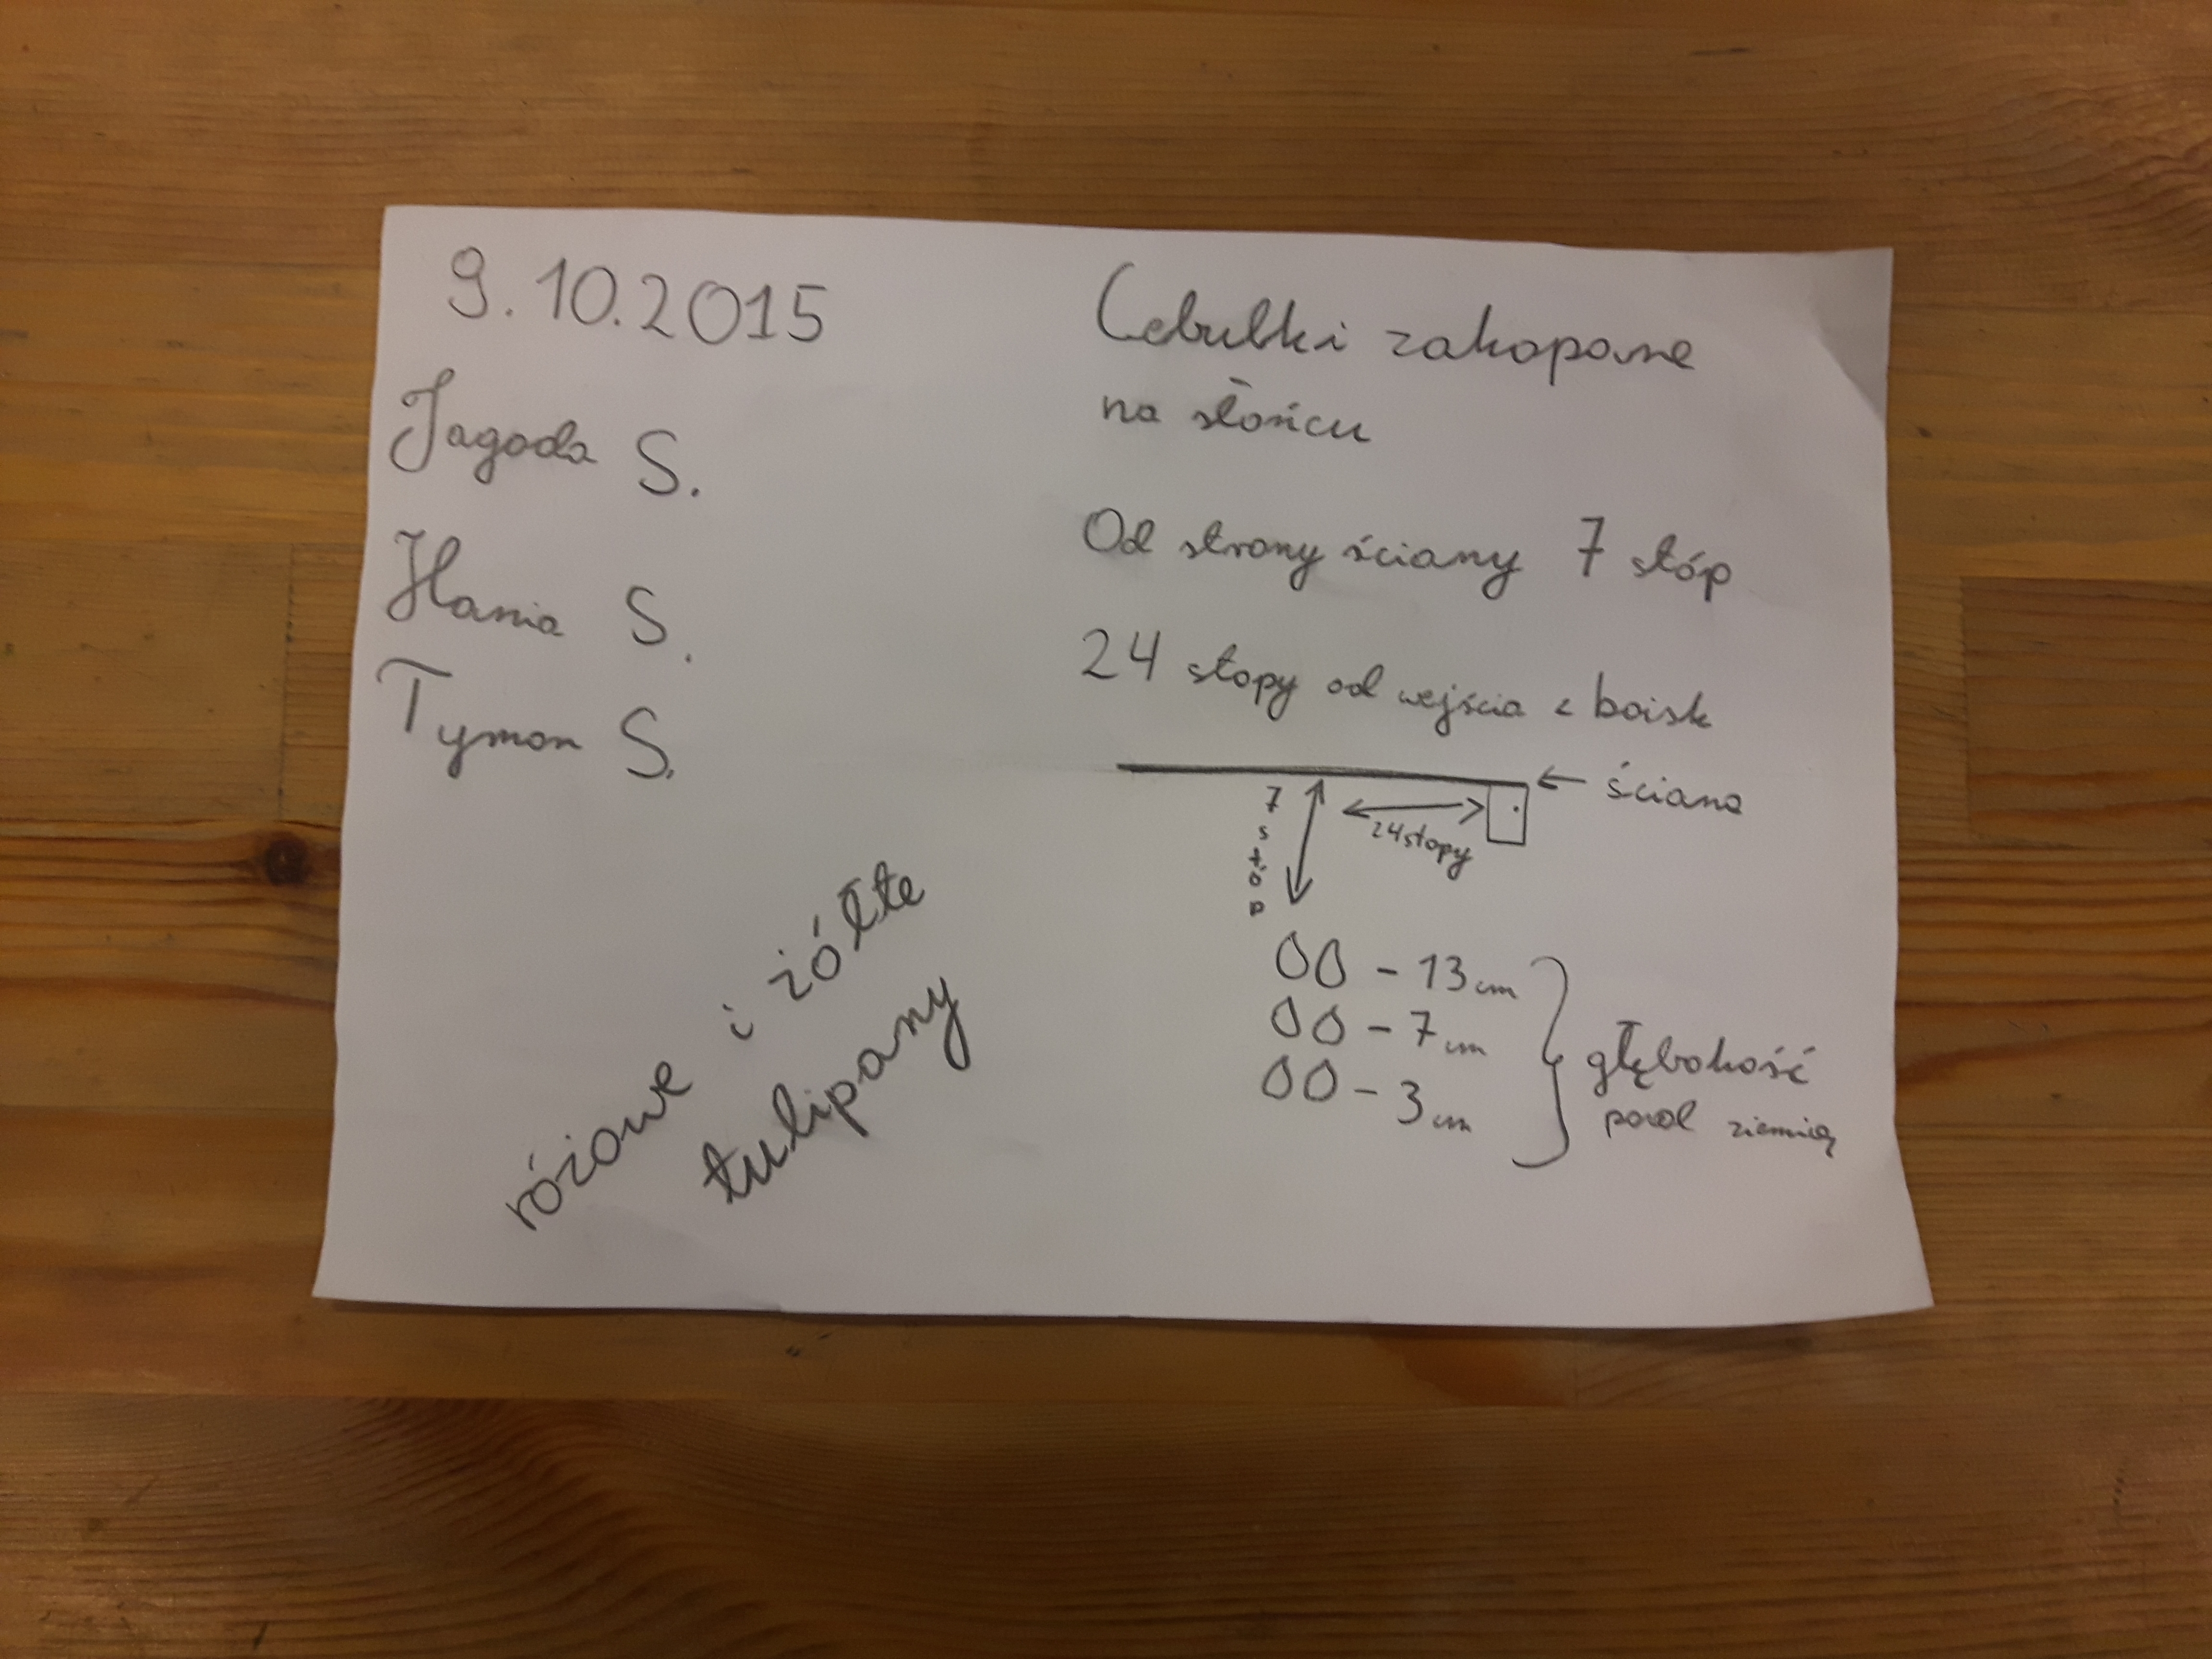 9.10.2015
Jagoda S.
Hania S.
Tymon S.
różowe i żółte
tulipany
Cebulki zakopane
na słońcu
Od strony ściany 7 stóp
24 stopy od wejścia z boisk
← ściana
7 stóp
24 stopy
00 - 13 cm
00 - 7 cm
00 - 3 cm
głębokość
pod ziemią